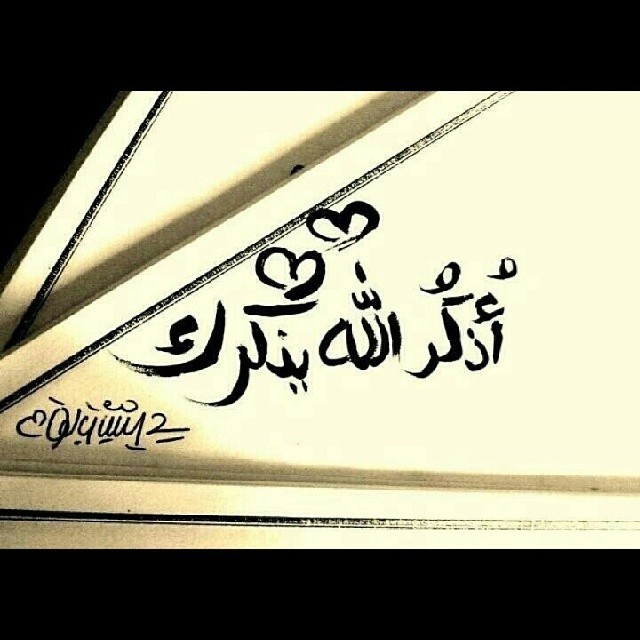 أُذكُر الله يذكرك